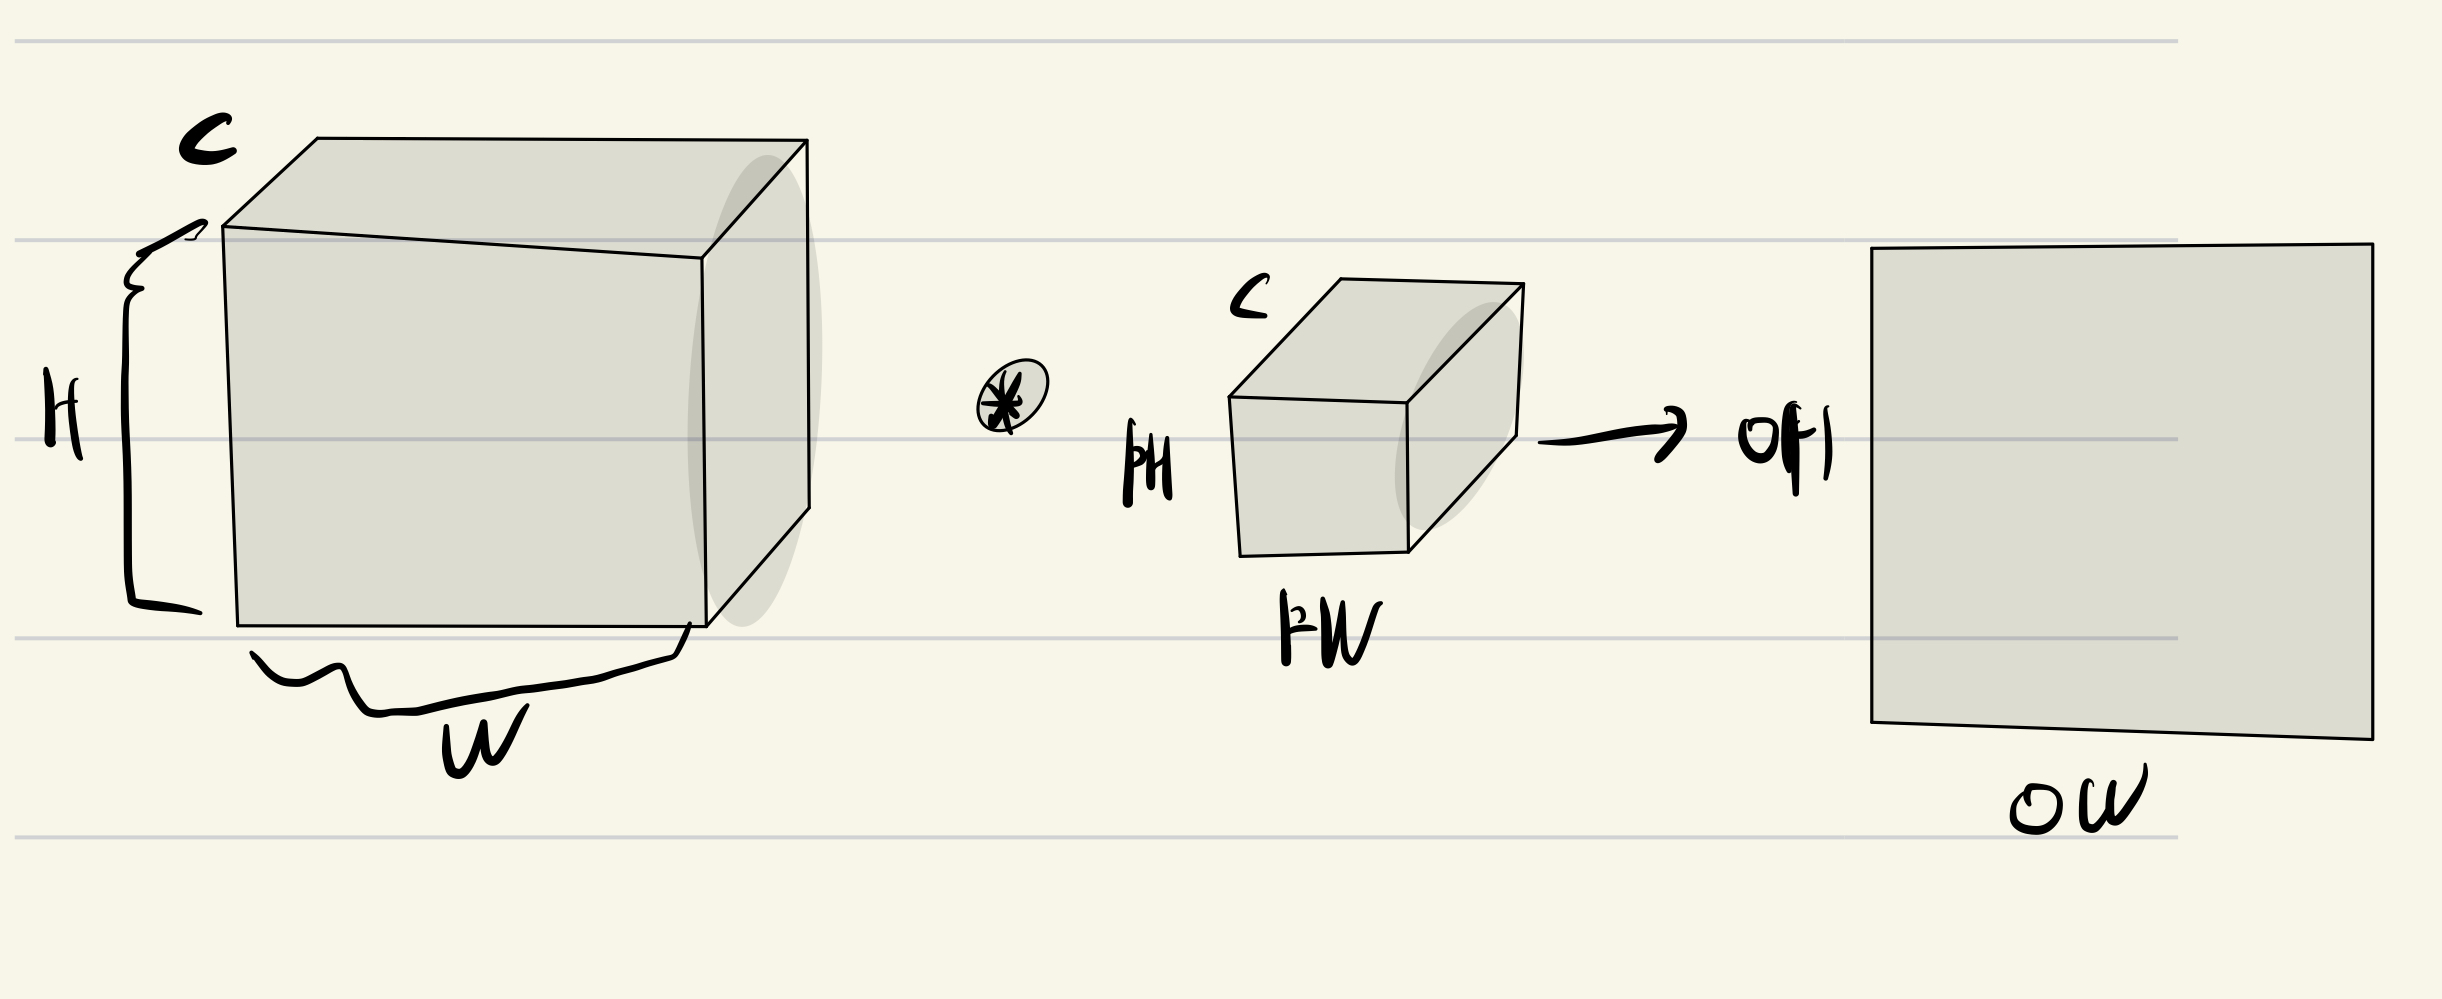 C
H
W
*
C
FH
FW
OH
OW